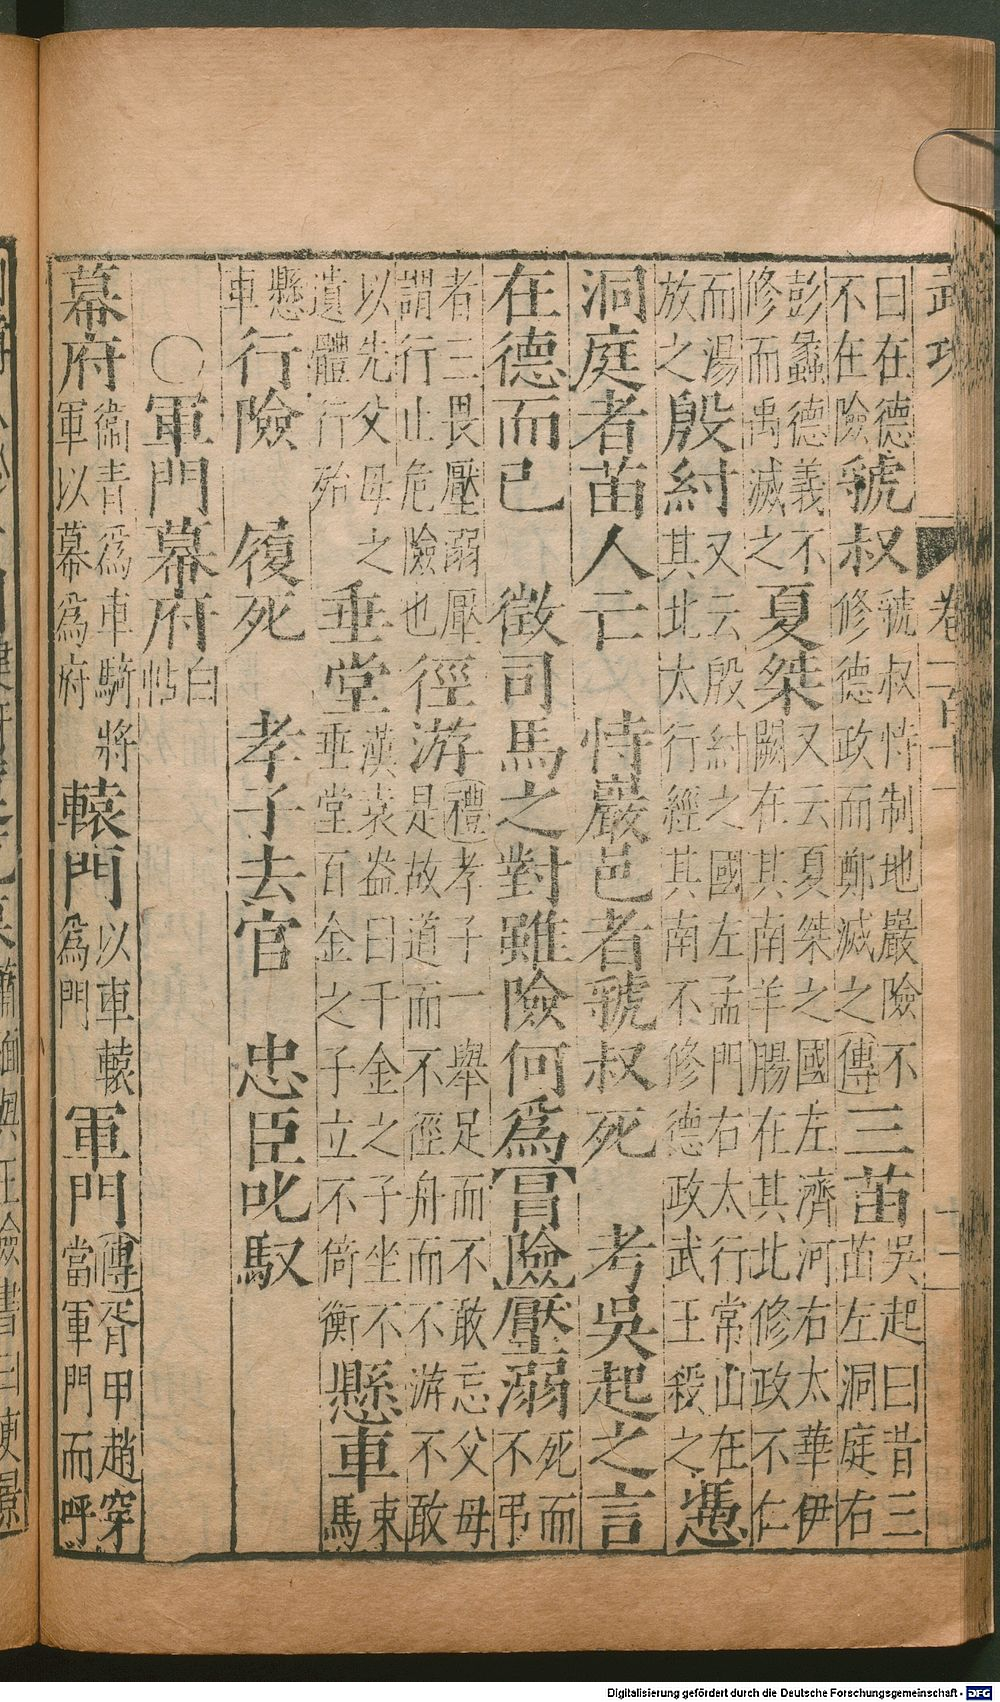 曰在德
不在險
虢叔
虢叔恃制地嚴險不
修德政而鄭滅之傳
三苗
吳起曰昔三
苗左洞庭右
彭蠡德義不
修而禹滅之
夏桀
又云夏桀之國左濟河右太華伊
闕在其南羊腸在其北修政不仁
而湯
放之
殷紂
又云殷紂之國左孟門右太行常山在
其北太行經其南不修德政武王殺之
憑
洞庭者苗人亡 恃嚴邑者虢叔死 考吳起之言
在德而已 徵司馬之對雖險何爲 冒險壓溺
死而
不弔
者三畏壓溺厭
謂行止危險也
徑游
禮孝子一舉足而不敢忘父母
是故道而不徑舟而不游不敢
以先父母之
遺體行殆
垂堂
漢袁盎曰千金之子坐不
垂堂百金之子立不倚衡
懸車
束
馬
懸
車
行險 履死 孝子去官 忠臣叱馭
〇軍門幕府
白
帖
幕府
衞青爲車騎將
軍以幕爲府
轅門
以車轅
爲門
軍門
傳胥甲趙穿
當軍門而呼
武功 卷一百十一
十一
Digitalisierung gefördert durch die Deutsche Forschungsgemeinschaft - DFG